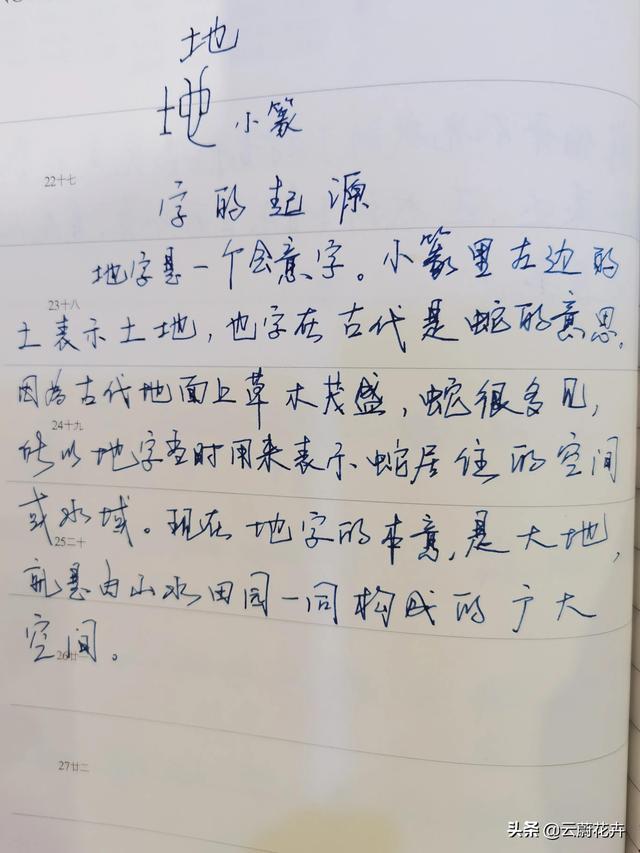 地
地 小篆
22十七
字的起源
地字是一个会意字。小篆里左边的
23十八
土表示土地，也字在古代是蛇的意思，
因为古代地面上草木茂盛，蛇很多见，
24十九
所以地字当时用来表示蛇居住的空间
或水域。现在地字的本意，是大地，
25二十
就是由山水田园一同构成的广大
空间。
26廿一
27廿二
头条 @云蔚花卉